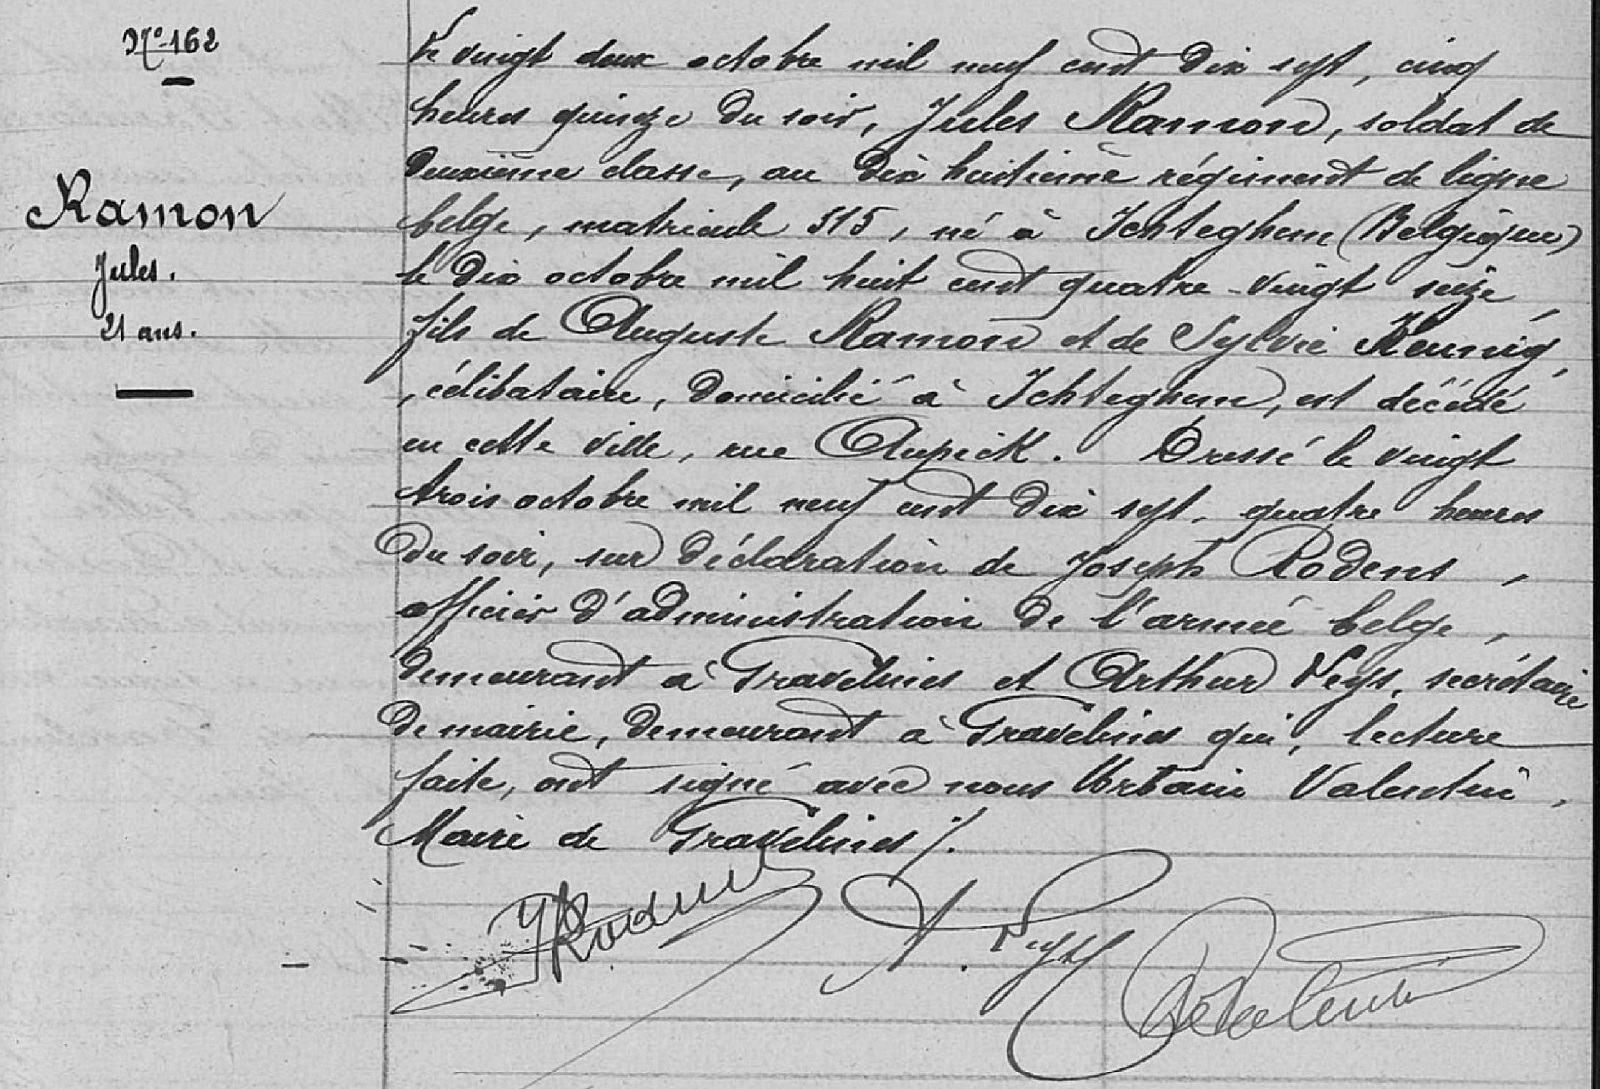 N° 162
Ramon
Jules.
21 ans.
Le vingt deux octobre mil neuf cent dix sept, cinq
heures quinze du soir, Jules Ramon, soldat de
deuxième classe, au dix huitième régiment de ligne
belge, matricule 515, né à Ichteghem (Belgique)
le dix octobre mil huit cent quatre-vingt seize,
fils de Auguste Ramon et de Sylvie
, célibataire, domicilié à Ichteghem, est décédé
en cette ville, rue Aupick. Dressé le vingt
trois octobre mil neuf cent dix sept, quatre heures
du soir, sur déclaration de Joseph Rodens,
officier d'administration de l'armée belge,
demeurant à Gravelines et Arthur Veys, secrétaire
de mairie, demeurant à Gravelines qui, lecture
faite, ont signé avec nous Urbain Valentin,
Maire de Gravelines /.
JRodens A. Veys